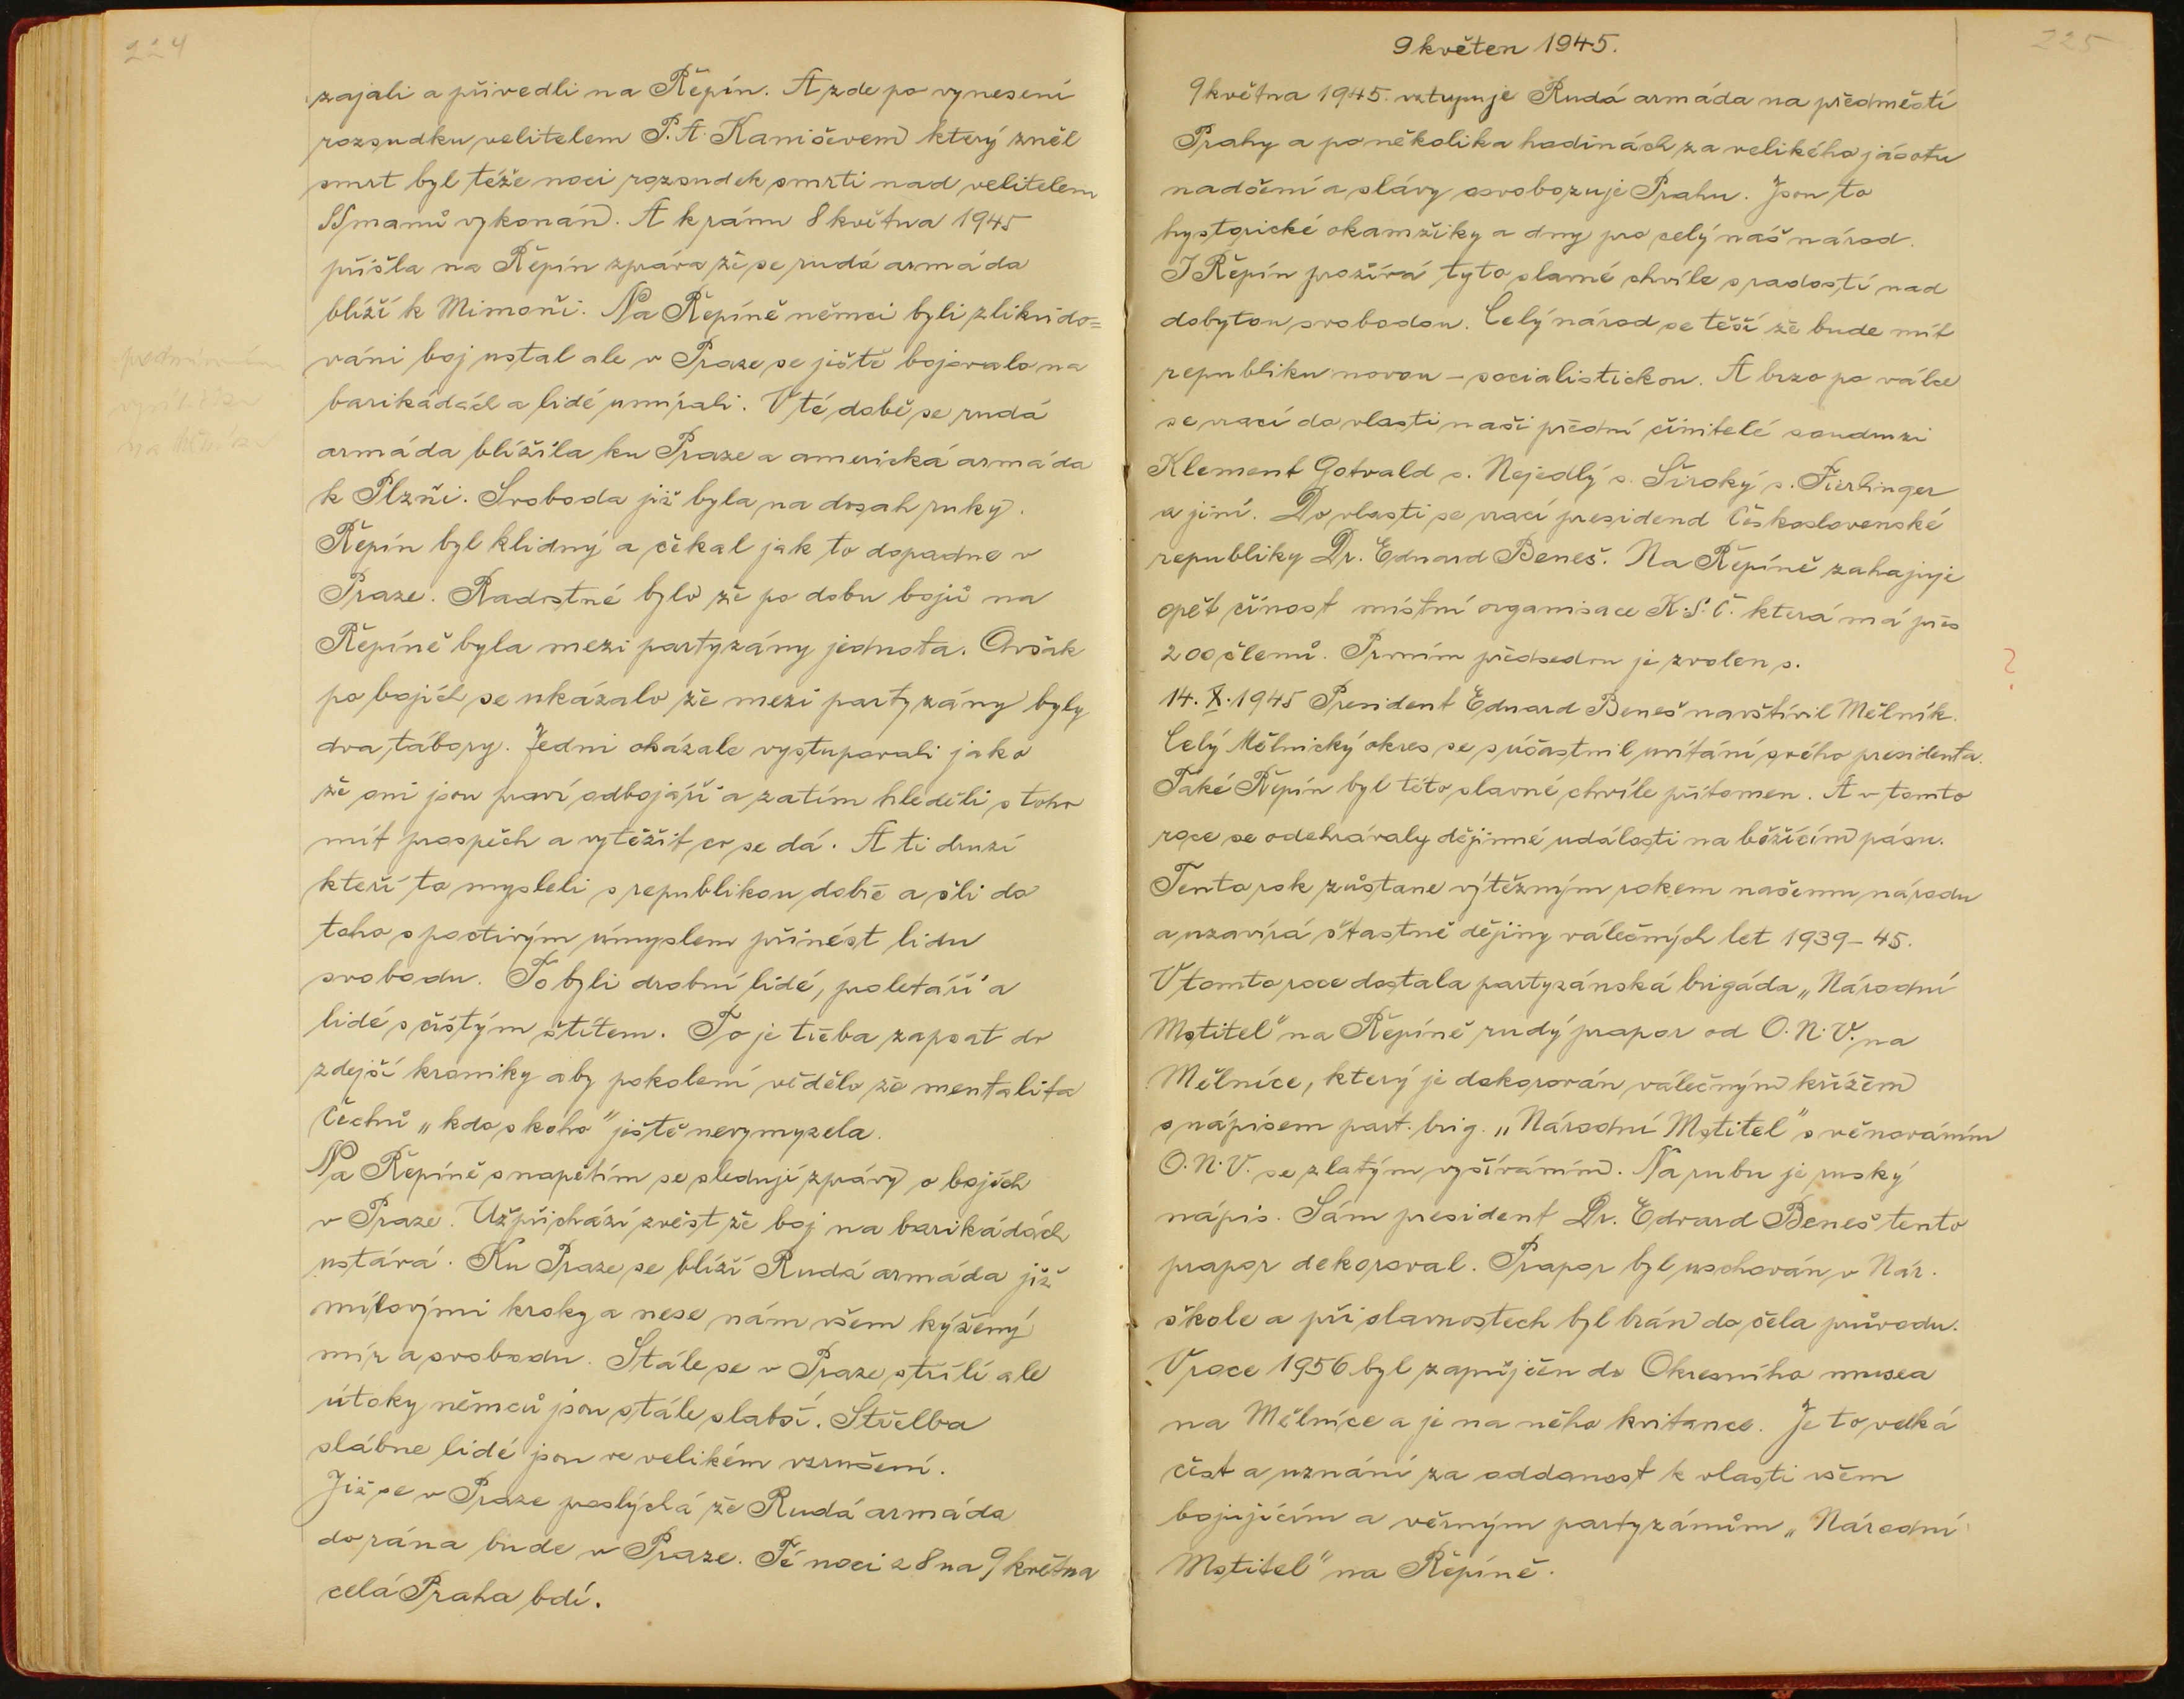 224
zajali a přivedli na Řepín. A zde po vynesení
rozsudku velitelem P. A. Kaničevem který zněl
smrt byl téže noci rozsudek smrti nad velitelem
SSmanů vykonán. A k ránu 8 května 1945
přišla na Řepín zpráva že se rudá armáda
blíží k Mimoňi. Na Řepíně němci byli zlikvido=
váni boj ustal ale v Praze se ještě bojovalo na
barikádách a lidé umírali. V té době se rudá
armáda blížila ku Praze a americká armáda
k Plzňi. Svoboda již byla na dosah ruky.
Řepín byl klidný a čekal jak to dopadne v
Praze. Radostné bylo že po dobu bojů na
Řepíně byla mezi partyzány jednota. Avšak
po bojích se ukázalo že mezi partyzány byly
dva tábory. Jedni okázale vystupovali jako
že oni jsou praví odbojáři a zatím hleděli s toho
mít prospěch a vytěžit co se dá. A ti druzí
kteří to mysleli s republikou dobře a šli do
toho s poctivým úmyslem přinést lidu
svobodu. To byli drobní lidé, proletáři a
lidé s čistým štítem. To je třeba zapsat do
zdejší kroniky aby pokolení vědělo že mentalita
Čechů „kdo s koho" ještě nevymyzela.
Na Řepíně s napětím se sledují zprávy o bojích
v Praze. Už přichází zvěst že boj na barikádách
ustává. Ku Praze se blíží Rudá armáda již
mílovými kroky a nese nám všem kýžený
mír a svobodu. Stále se v Praze střílí ale
útoky němců jsou stále slabší. Střelba
slábne lidé jsou ve velikém vzrušení.
Již se v Praze proslýchá že Rudá armáda
do rána bude v Praze. Té noci z 8 na 9 května
celá Praha bdí.
225
9 květen 1945.
9 května 1945. vstupuje Rudá armáda na předměstí
Prahy a po několika hodinách za velikého jásotu
nadšení a slávy osvobozuje Prahu. Jsou to
hystorické okamžiky a dny pro celý náš národ.
I Řepín prožívá tyto slavné chvíle s radostí nad
dobytou svobodou. Celý národ se těší že bude mít
republiku novou – socialistickou. A brzo po válce
se vrací do vlasti naši přední činitelé soudruzi
Klement Gotvald s. Nejedlý s. Široký s. Fierlinger
a jiní. Do vlasti se vrací presidend Československé
republiky Dr. Eduard Beneš. Na Řepíně zahajuje
opět činost místní organisace K.S.Č. která má přes
200 členů. Prvním předsedou je zvolen s.
?
14. X. 1945 President Eduard Beneš navštívil Mělník.
Celý Mělnický okres se súčastnil uvítání svého presidenta.
Také Řepín byl této slavné chvíle přítomen. A v tomto
roce se odehrávaly dějinné události na běžícím pásu.
Tento rok zůstane výtěžným rokem našemu národu
a uzavírá šťastně dějiny válečných let 1939–45.
V tomto roce dostala partyzánská brigáda „Národní
Mstitel" na Řepíně rudý prapor od O.N.V. na
Mělníce, který je dekorován válečným křížem
s nápisem part. brig. „Národní Mstitel" s věnováním
O.N.V. se zlatým vyšíváním. Na rubu je ruský
nápis. Sám president Dr. Edvard Beneš tento
prapor dekoroval. Prapor byl uschován v Nár.
škole a při slavnostech byl brán do čela průvodu.
V roce 1956 byl zapůjčen do Okresního musea
na Mělníce a je na něho kvitance. Je to velká
čest a uznání za oddanost k vlasti všem
bojujícím a věrným partyzánům „Národní
Mstitel" na Řepíně.